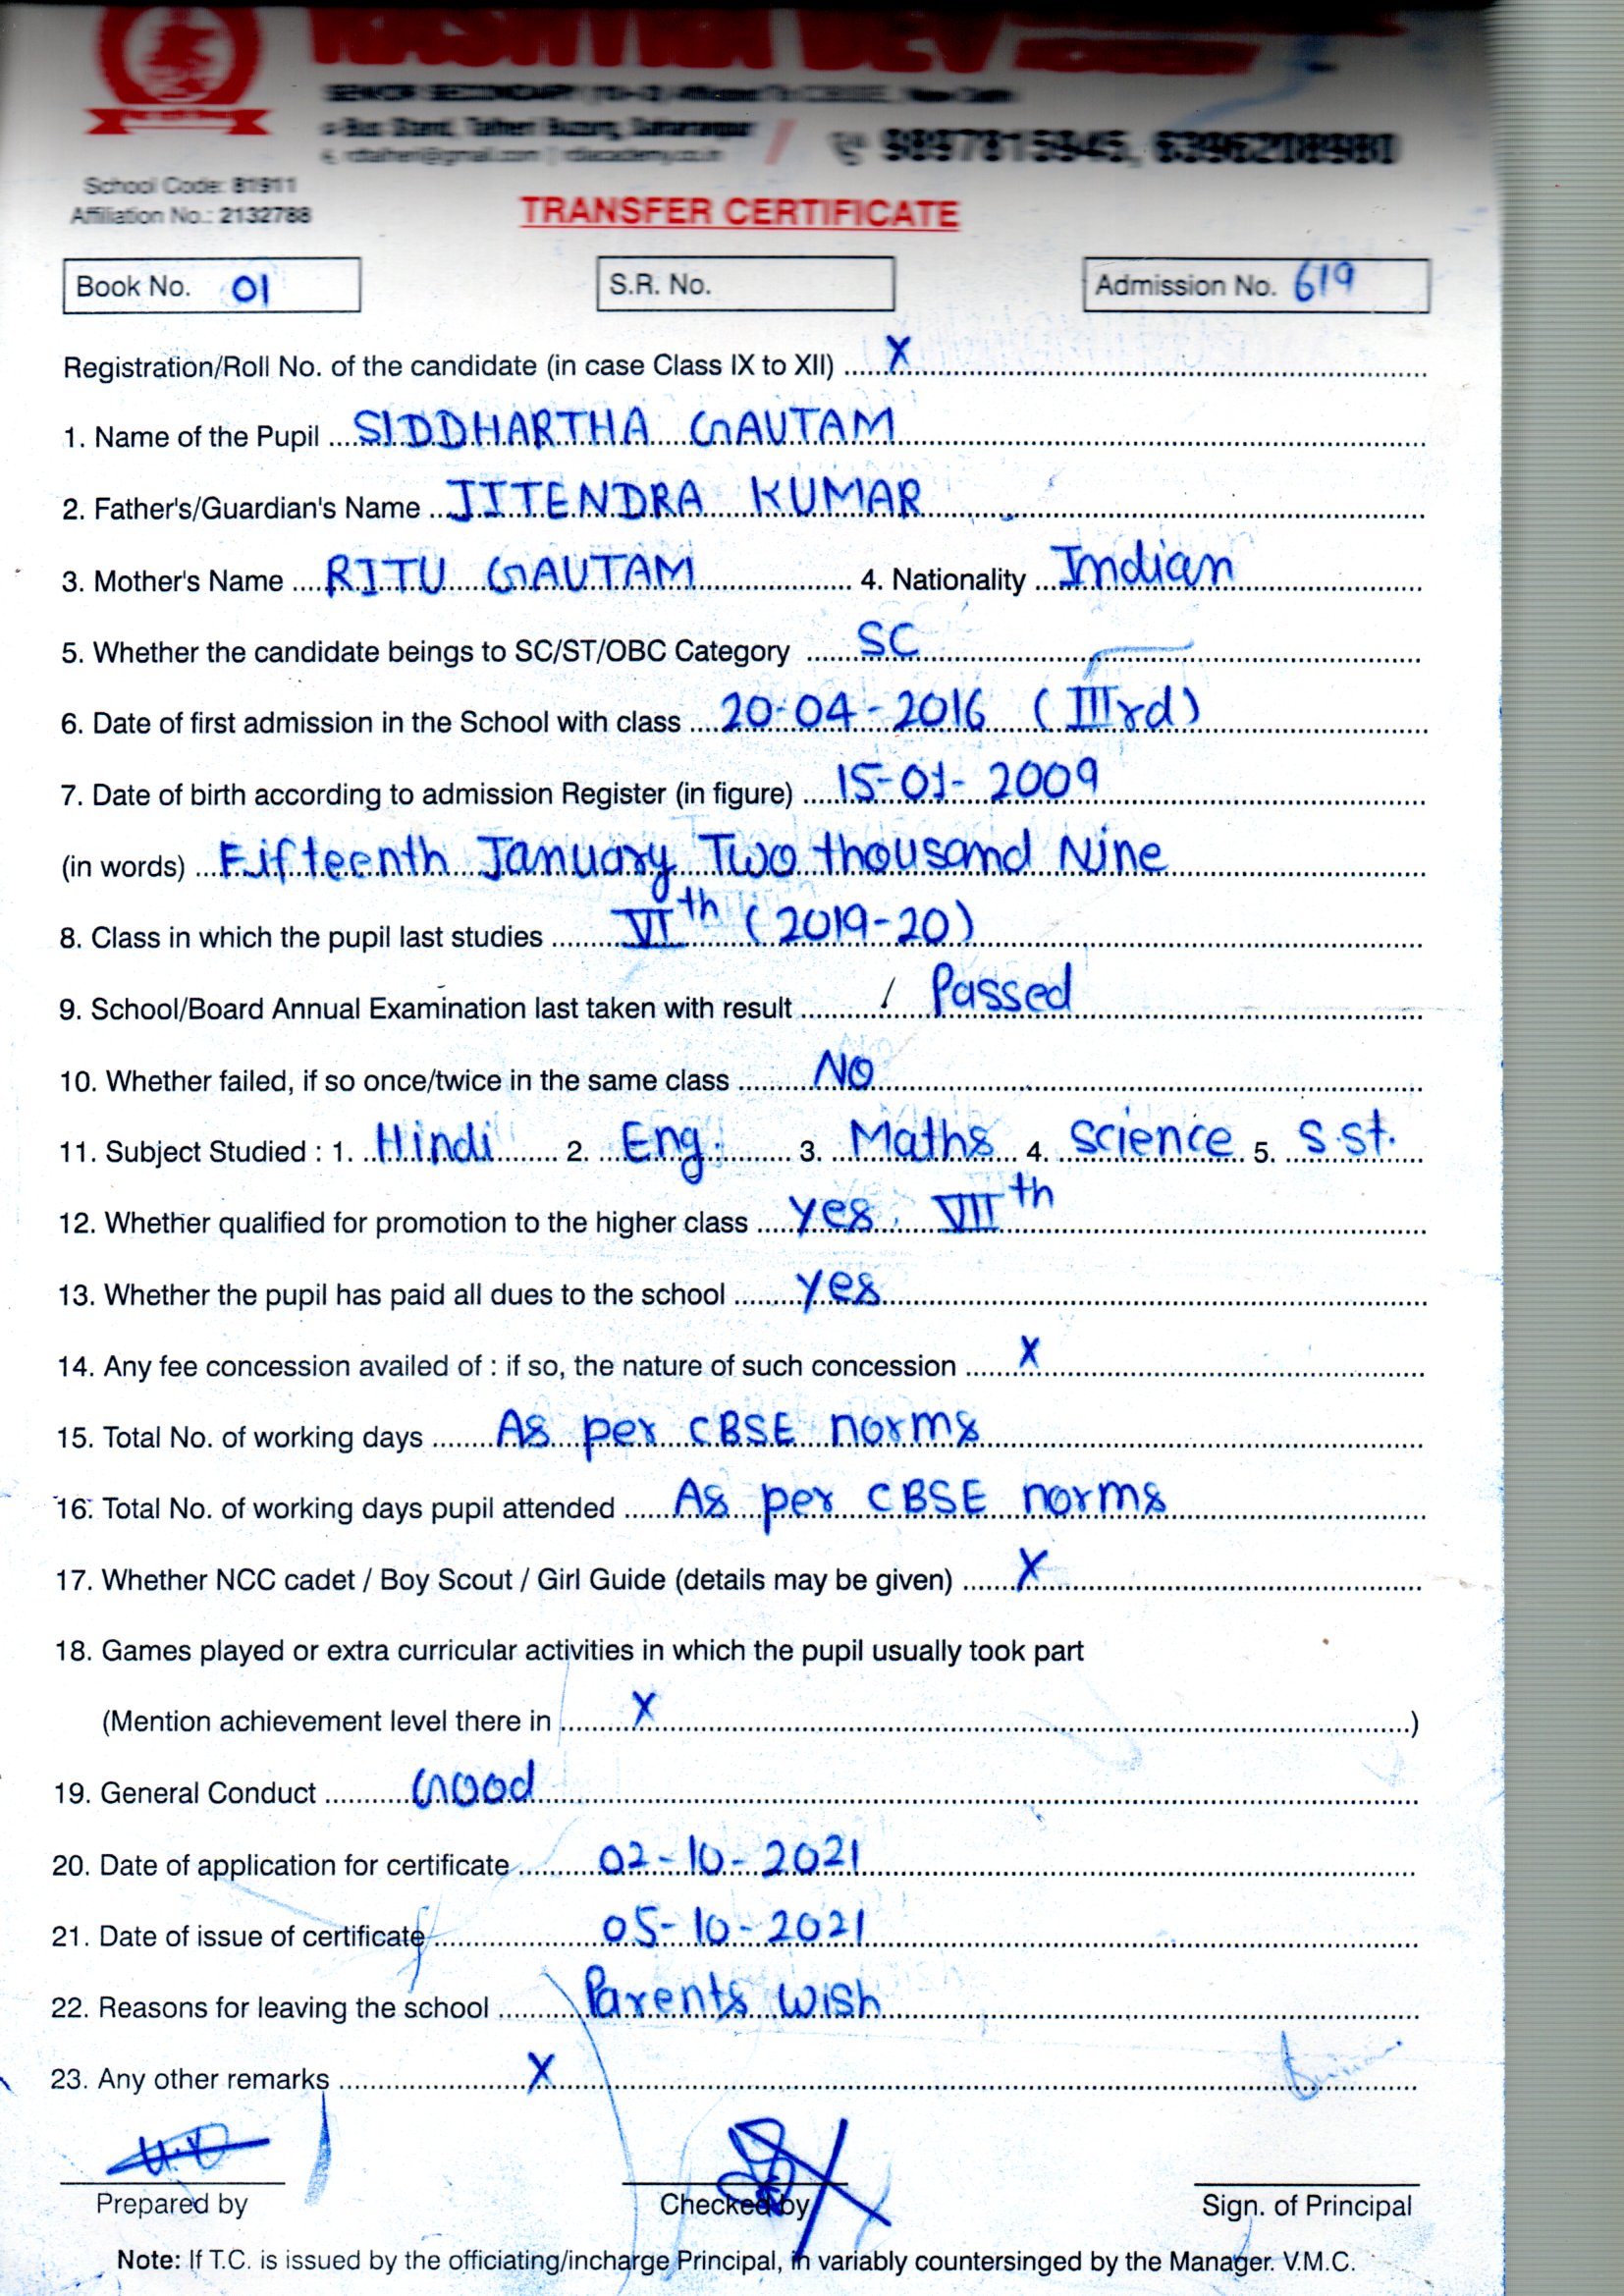 RASHTRA DEV ACADEMY
SENIOR SECONDARY (10+2) Affiliated To C.B.S.E., New Delhi
Bus Stand, Talheri Buzurg, Saharanpur
9897815945, 6396218981
School Code: 81911
Affiliation No.: 2132788
TRANSFER CERTIFICATE
Book No. 01 S.R. No. Admission No. 619
Registration/Roll No. of the candidate (in case Class IX to XII) X
1. Name of the Pupil SIDDHARTHA GAUTAM
2. Father's/Guardian's Name JITENDRA KUMAR
3. Mother's Name RITU GAUTAM 4. Nationality Indian
5. Whether the candidate beings to SC/ST/OBC Category SC
6. Date of first admission in the School with class 20-04-2016 (IIIrd)
7. Date of birth according to admission Register (in figure) 15-01-2009
(in words) Fifteenth January Two thousand Nine
8. Class in which the pupil last studies VIth (2019-20)
9. School/Board Annual Examination last taken with result / Passed
10. Whether failed, if so once/twice in the same class NO
11. Subject Studied : 1. Hindi 2. Eng. 3. Maths 4. Science 5. S.st.
12. Whether qualified for promotion to the higher class yes, VIIth
13. Whether the pupil has paid all dues to the school yes
14. Any fee concession availed of : if so, the nature of such concession X
15. Total No. of working days As per CBSE norms
16. Total No. of working days pupil attended As per CBSE norms
17. Whether NCC cadet / Boy Scout / Girl Guide (details may be given) X
18. Games played or extra curricular activities in which the pupil usually took part
(Mention achievement level there in X )
19. General Conduct Good
20. Date of application for certificate 02-10-2021
21. Date of issue of certificate 05-10-2021
22. Reasons for leaving the school Parents wish
23. Any other remarks X
Prepared by Checked by Sign. of Principal
Note: If T.C. is issued by the officiating/incharge Principal, in variably countersinged by the Manager. V.M.C.